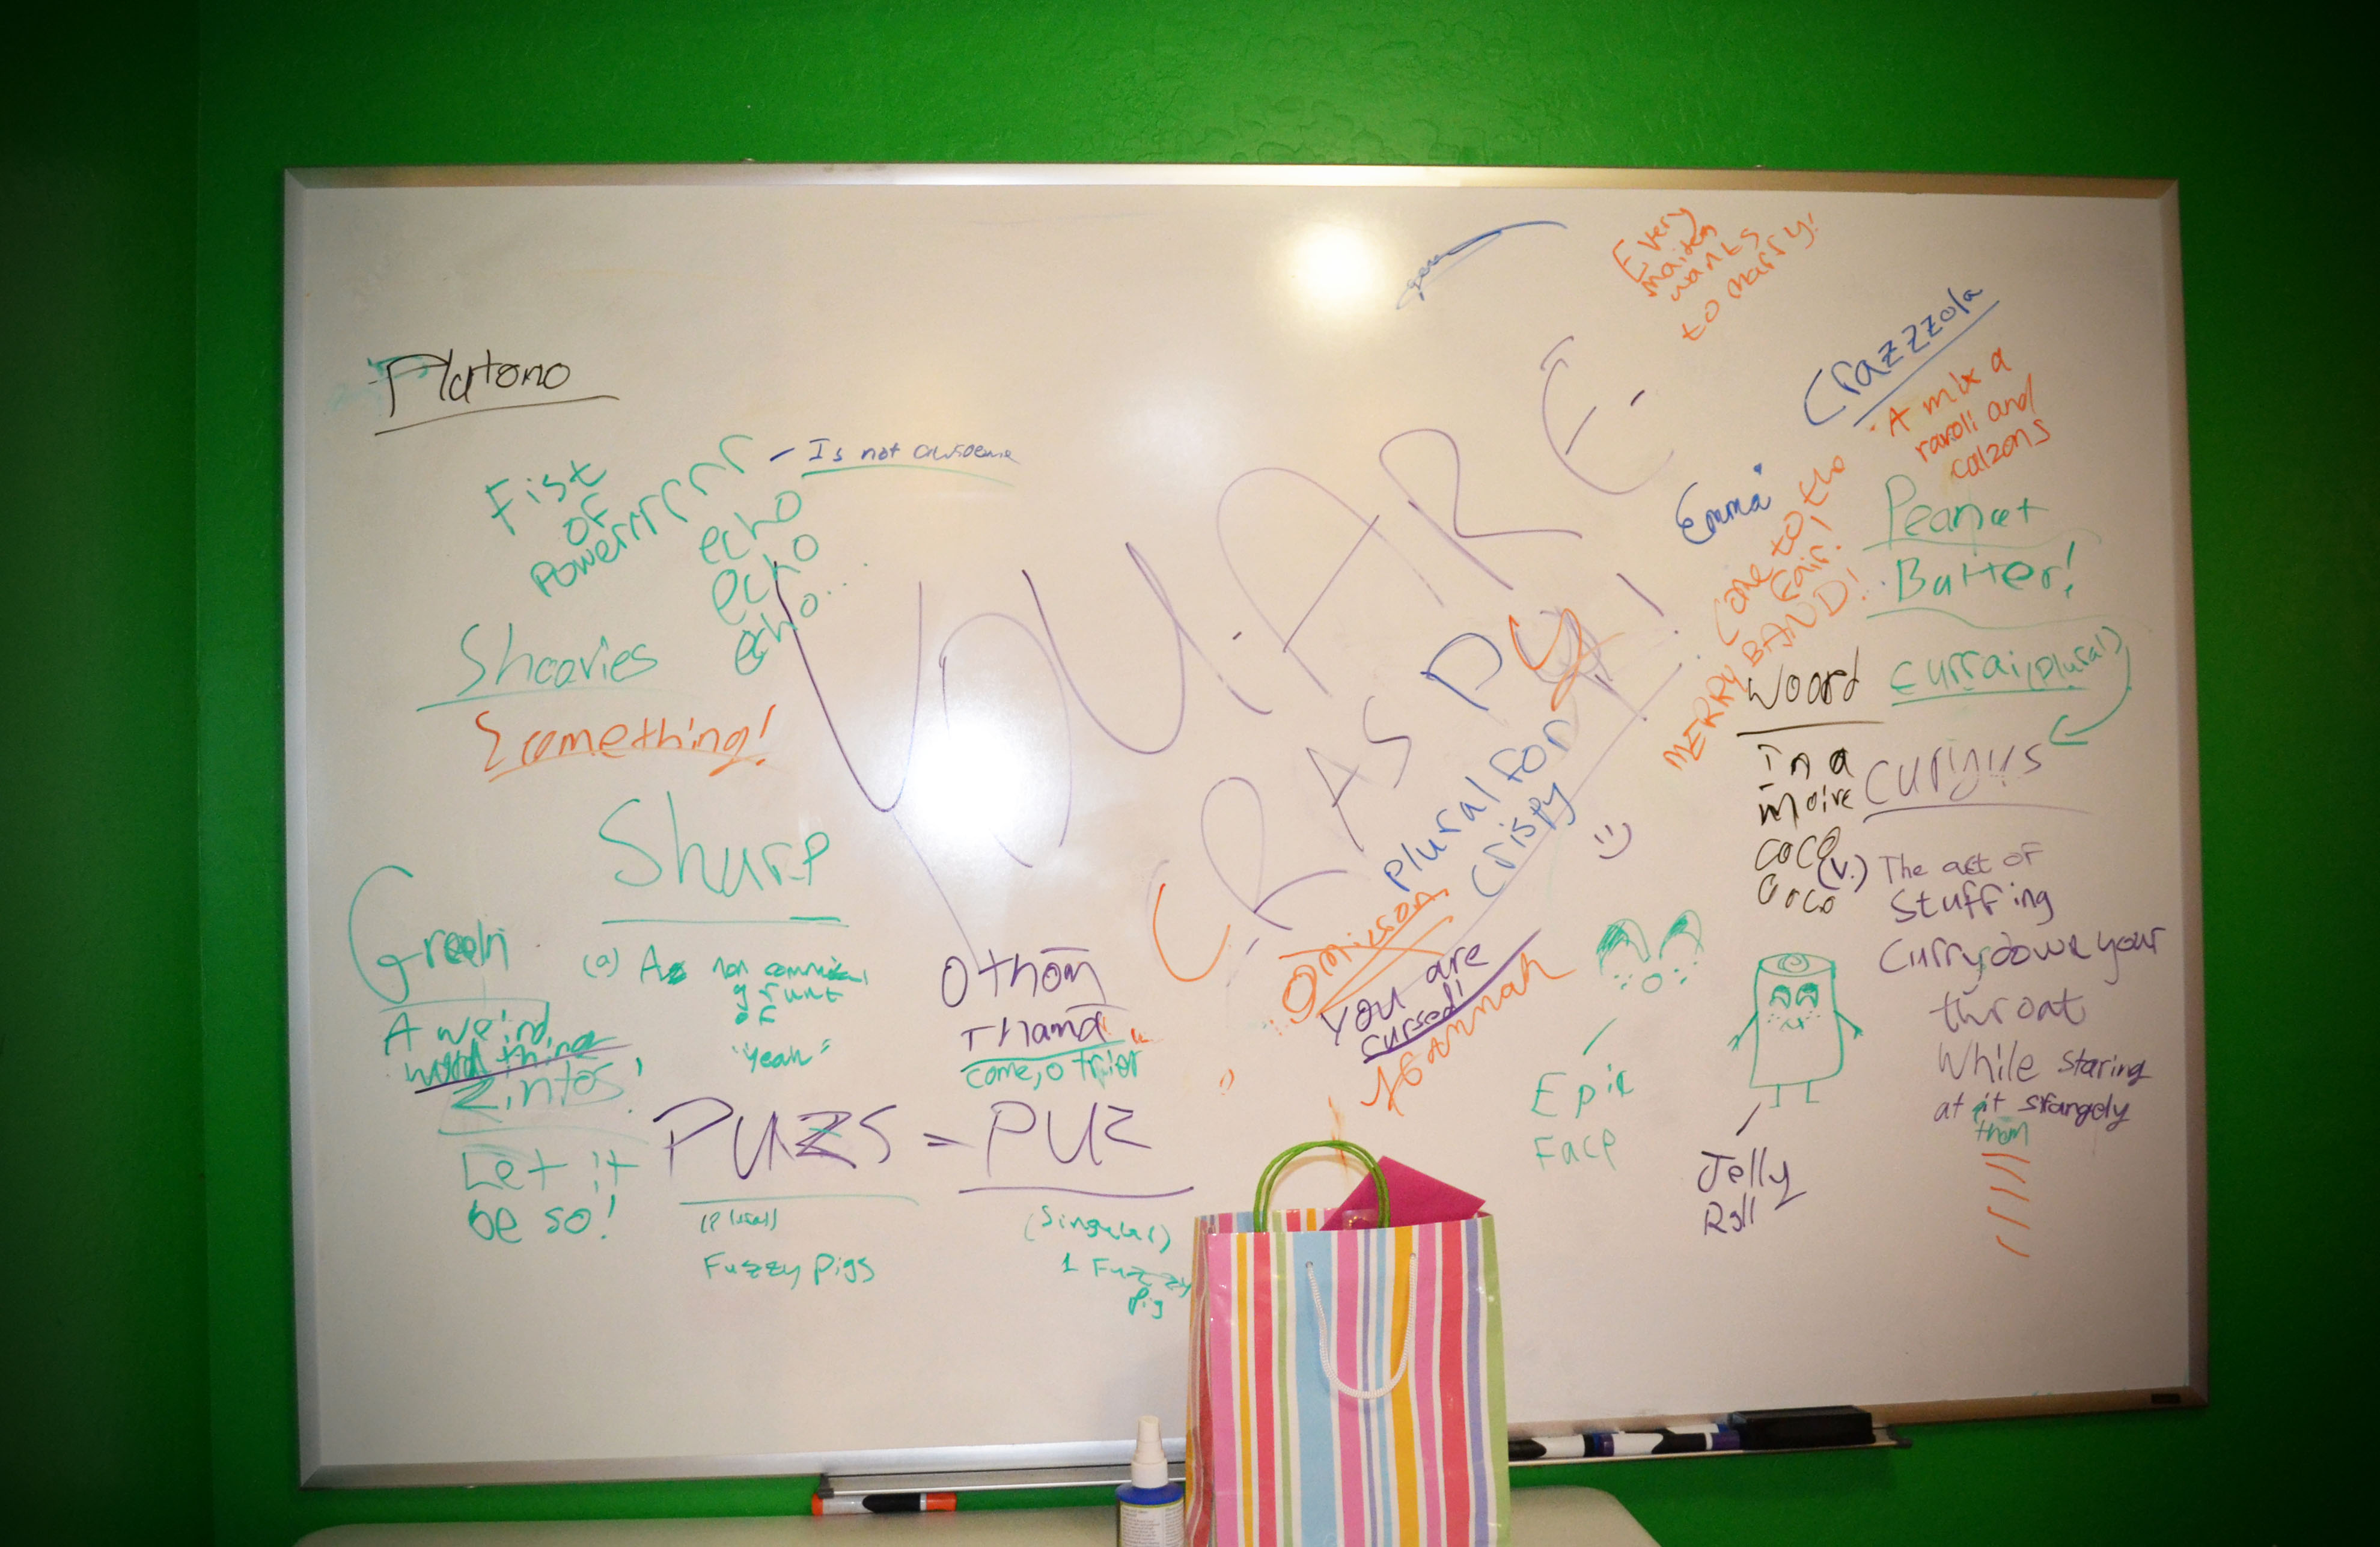 Platono
Fist
of
Powerrrrrrr
- Is not awsome
echo
echo
echo...
Shoovies
Something!
Shurp
(a) A non
grunt
of
"yeah"
Green
A weird
word thing
Zintos!
Let it
be so!
Othom
Thama
come, o
PUZS = PUZ
(Plural)
Fuzzy Pigs
(Singular)
1 Fuzzy
Pig
YOU ARE
CRASPY!
plural for
crispy
Omission
you are
cursed!
Every
maiden
wants
to marry!
Crazzzola
A mix a
ravoli and
calzons
Emma
Come to the
Fair!
MERRY BAND!
Peanut
Butter!
Woord
in a
coco
coco
currai (plural)
(v.) The act of
stuffing
curry down your
throat
While staring
at it strangely
them
:)
Epic
Face
Jelly
Roll